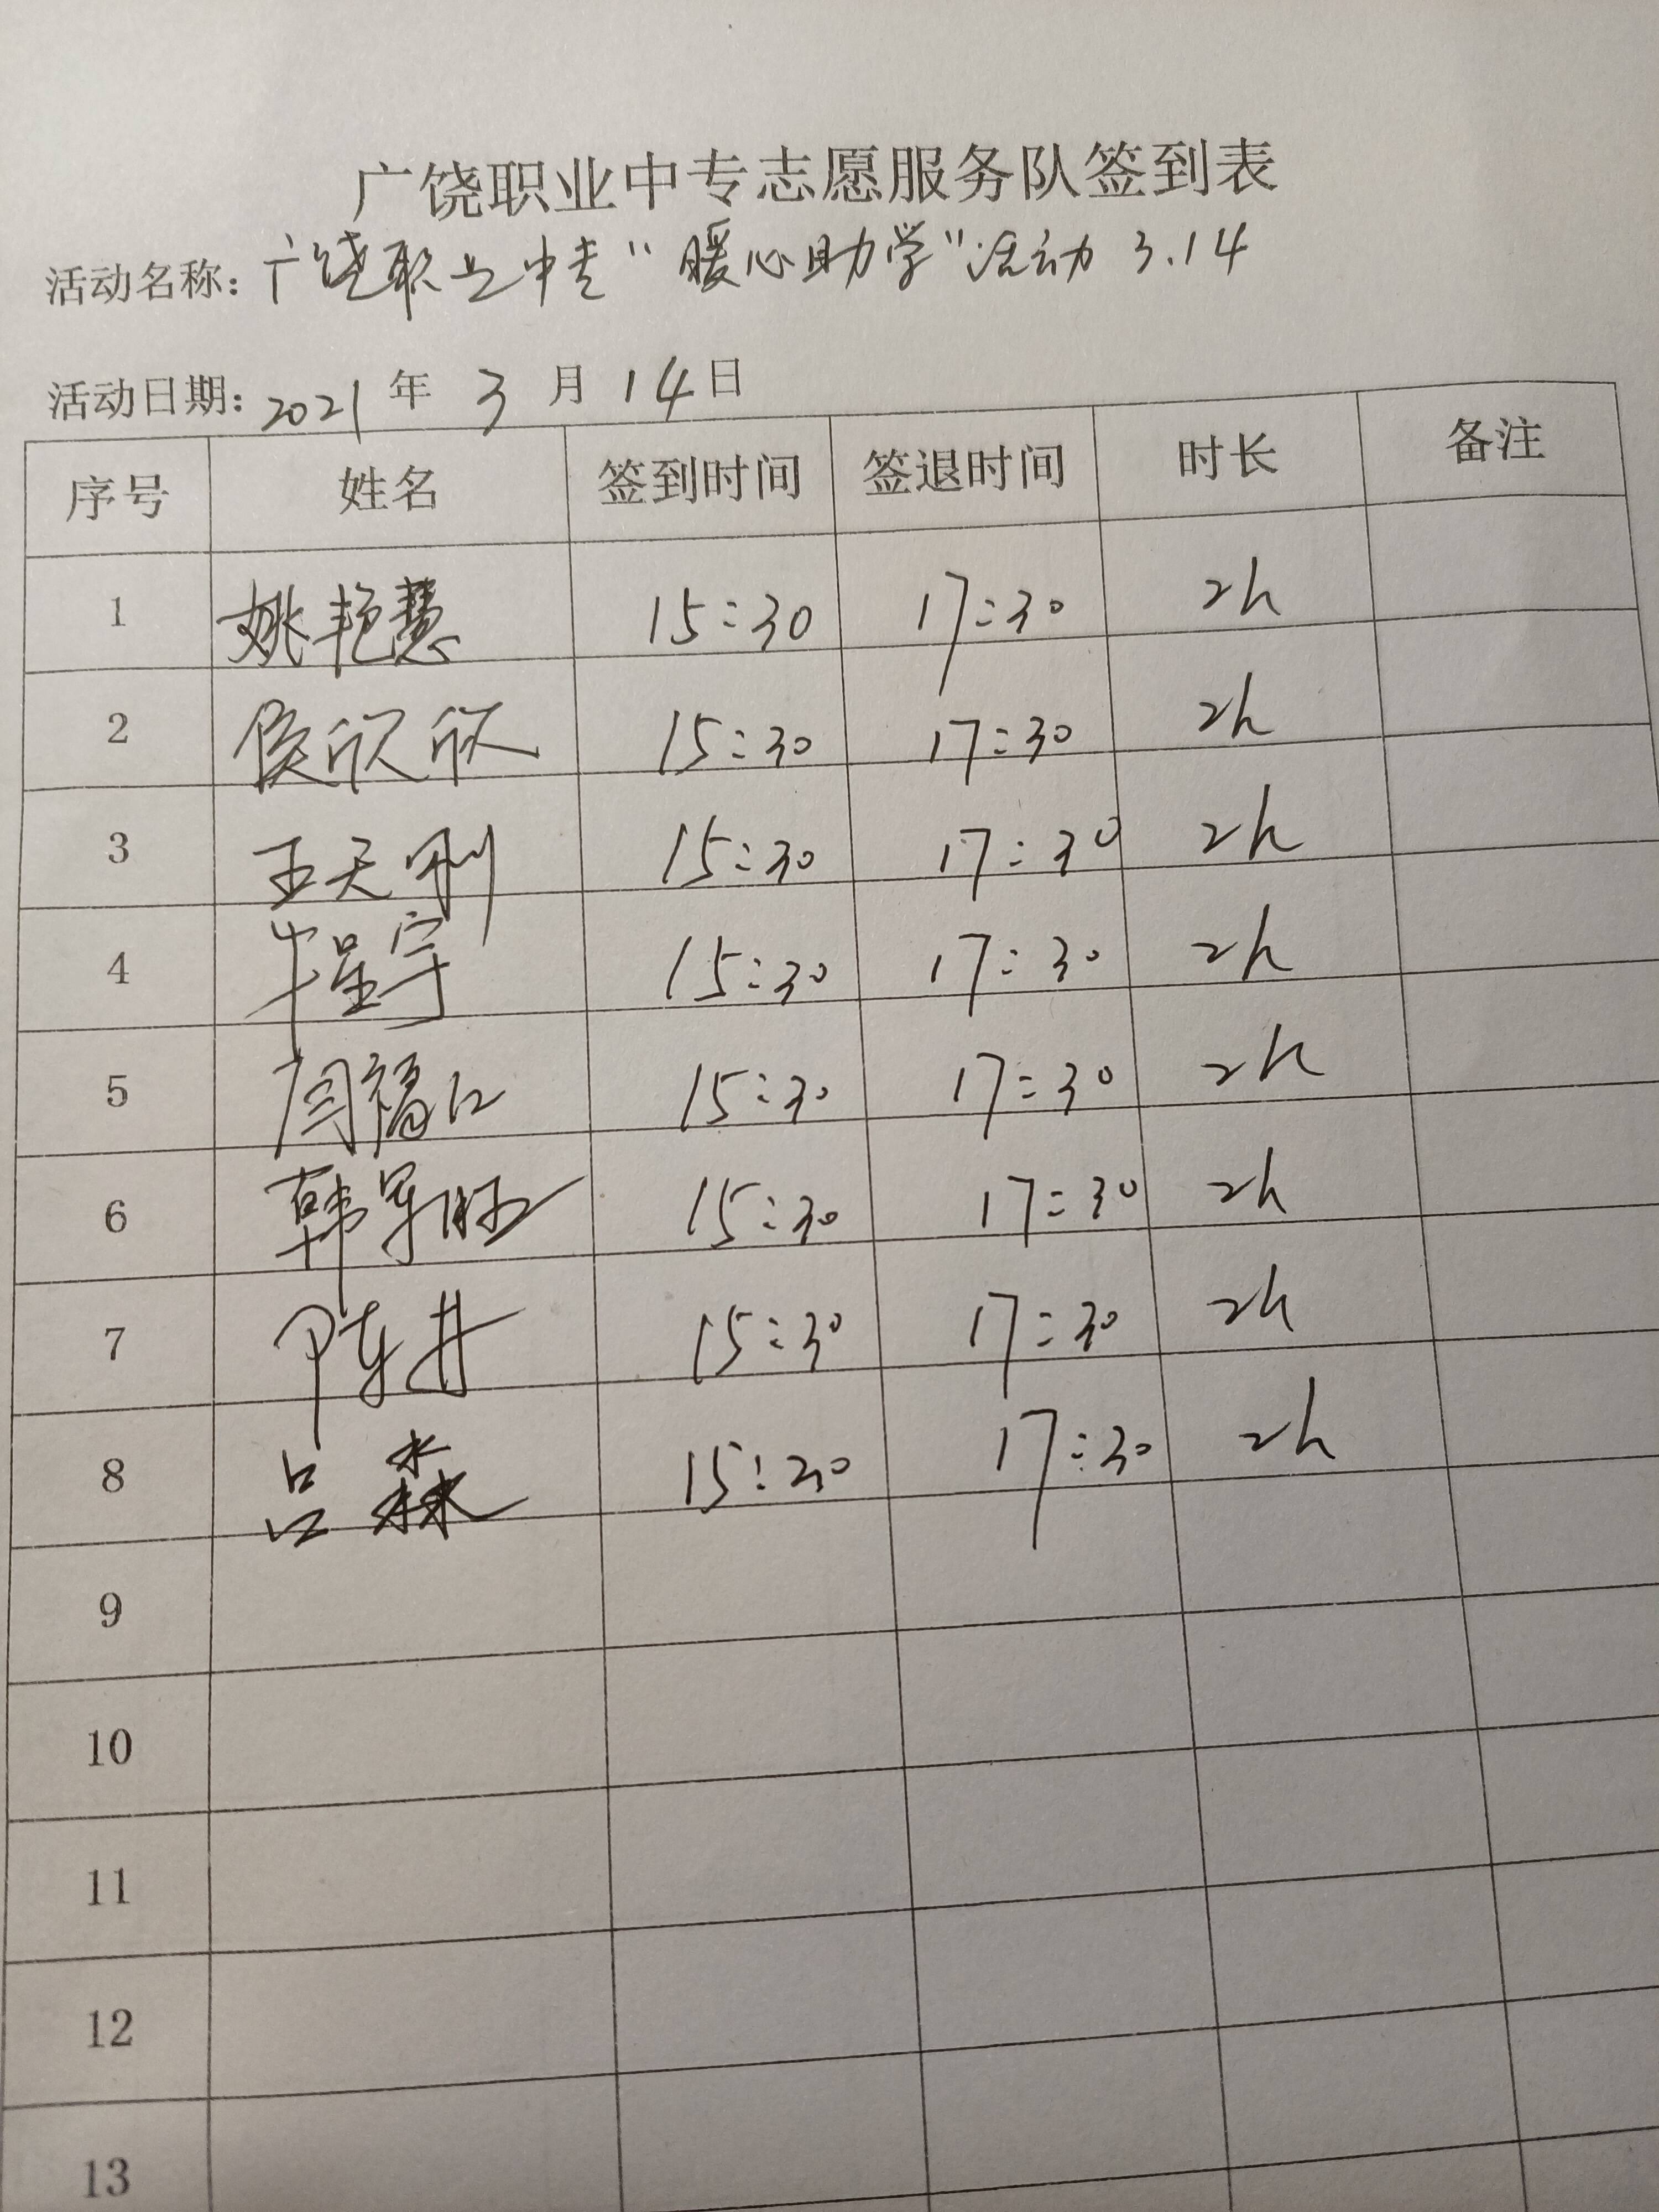 广饶职业中专志愿服务队签到表
活动名称：广饶职业中专“暖心助学”活动 3.14
活动日期：2021 年 3 月 14 日
序号 姓名 签到时间 签退时间 时长 备注
1 姚艳慧 15:30 17:30 2h
2 侯欣欣 15:30 17:30 2h
3 王天刚 15:30 17:30 2h
4 牛星宇 15:30 17:30 2h
5 闫福江 15:30 17:30 2h
6 韩军旺 15:30 17:30 2h
7 15:30 17:30 2h
8 吕森 15:30 17:30 2h
9
10
11
12
13